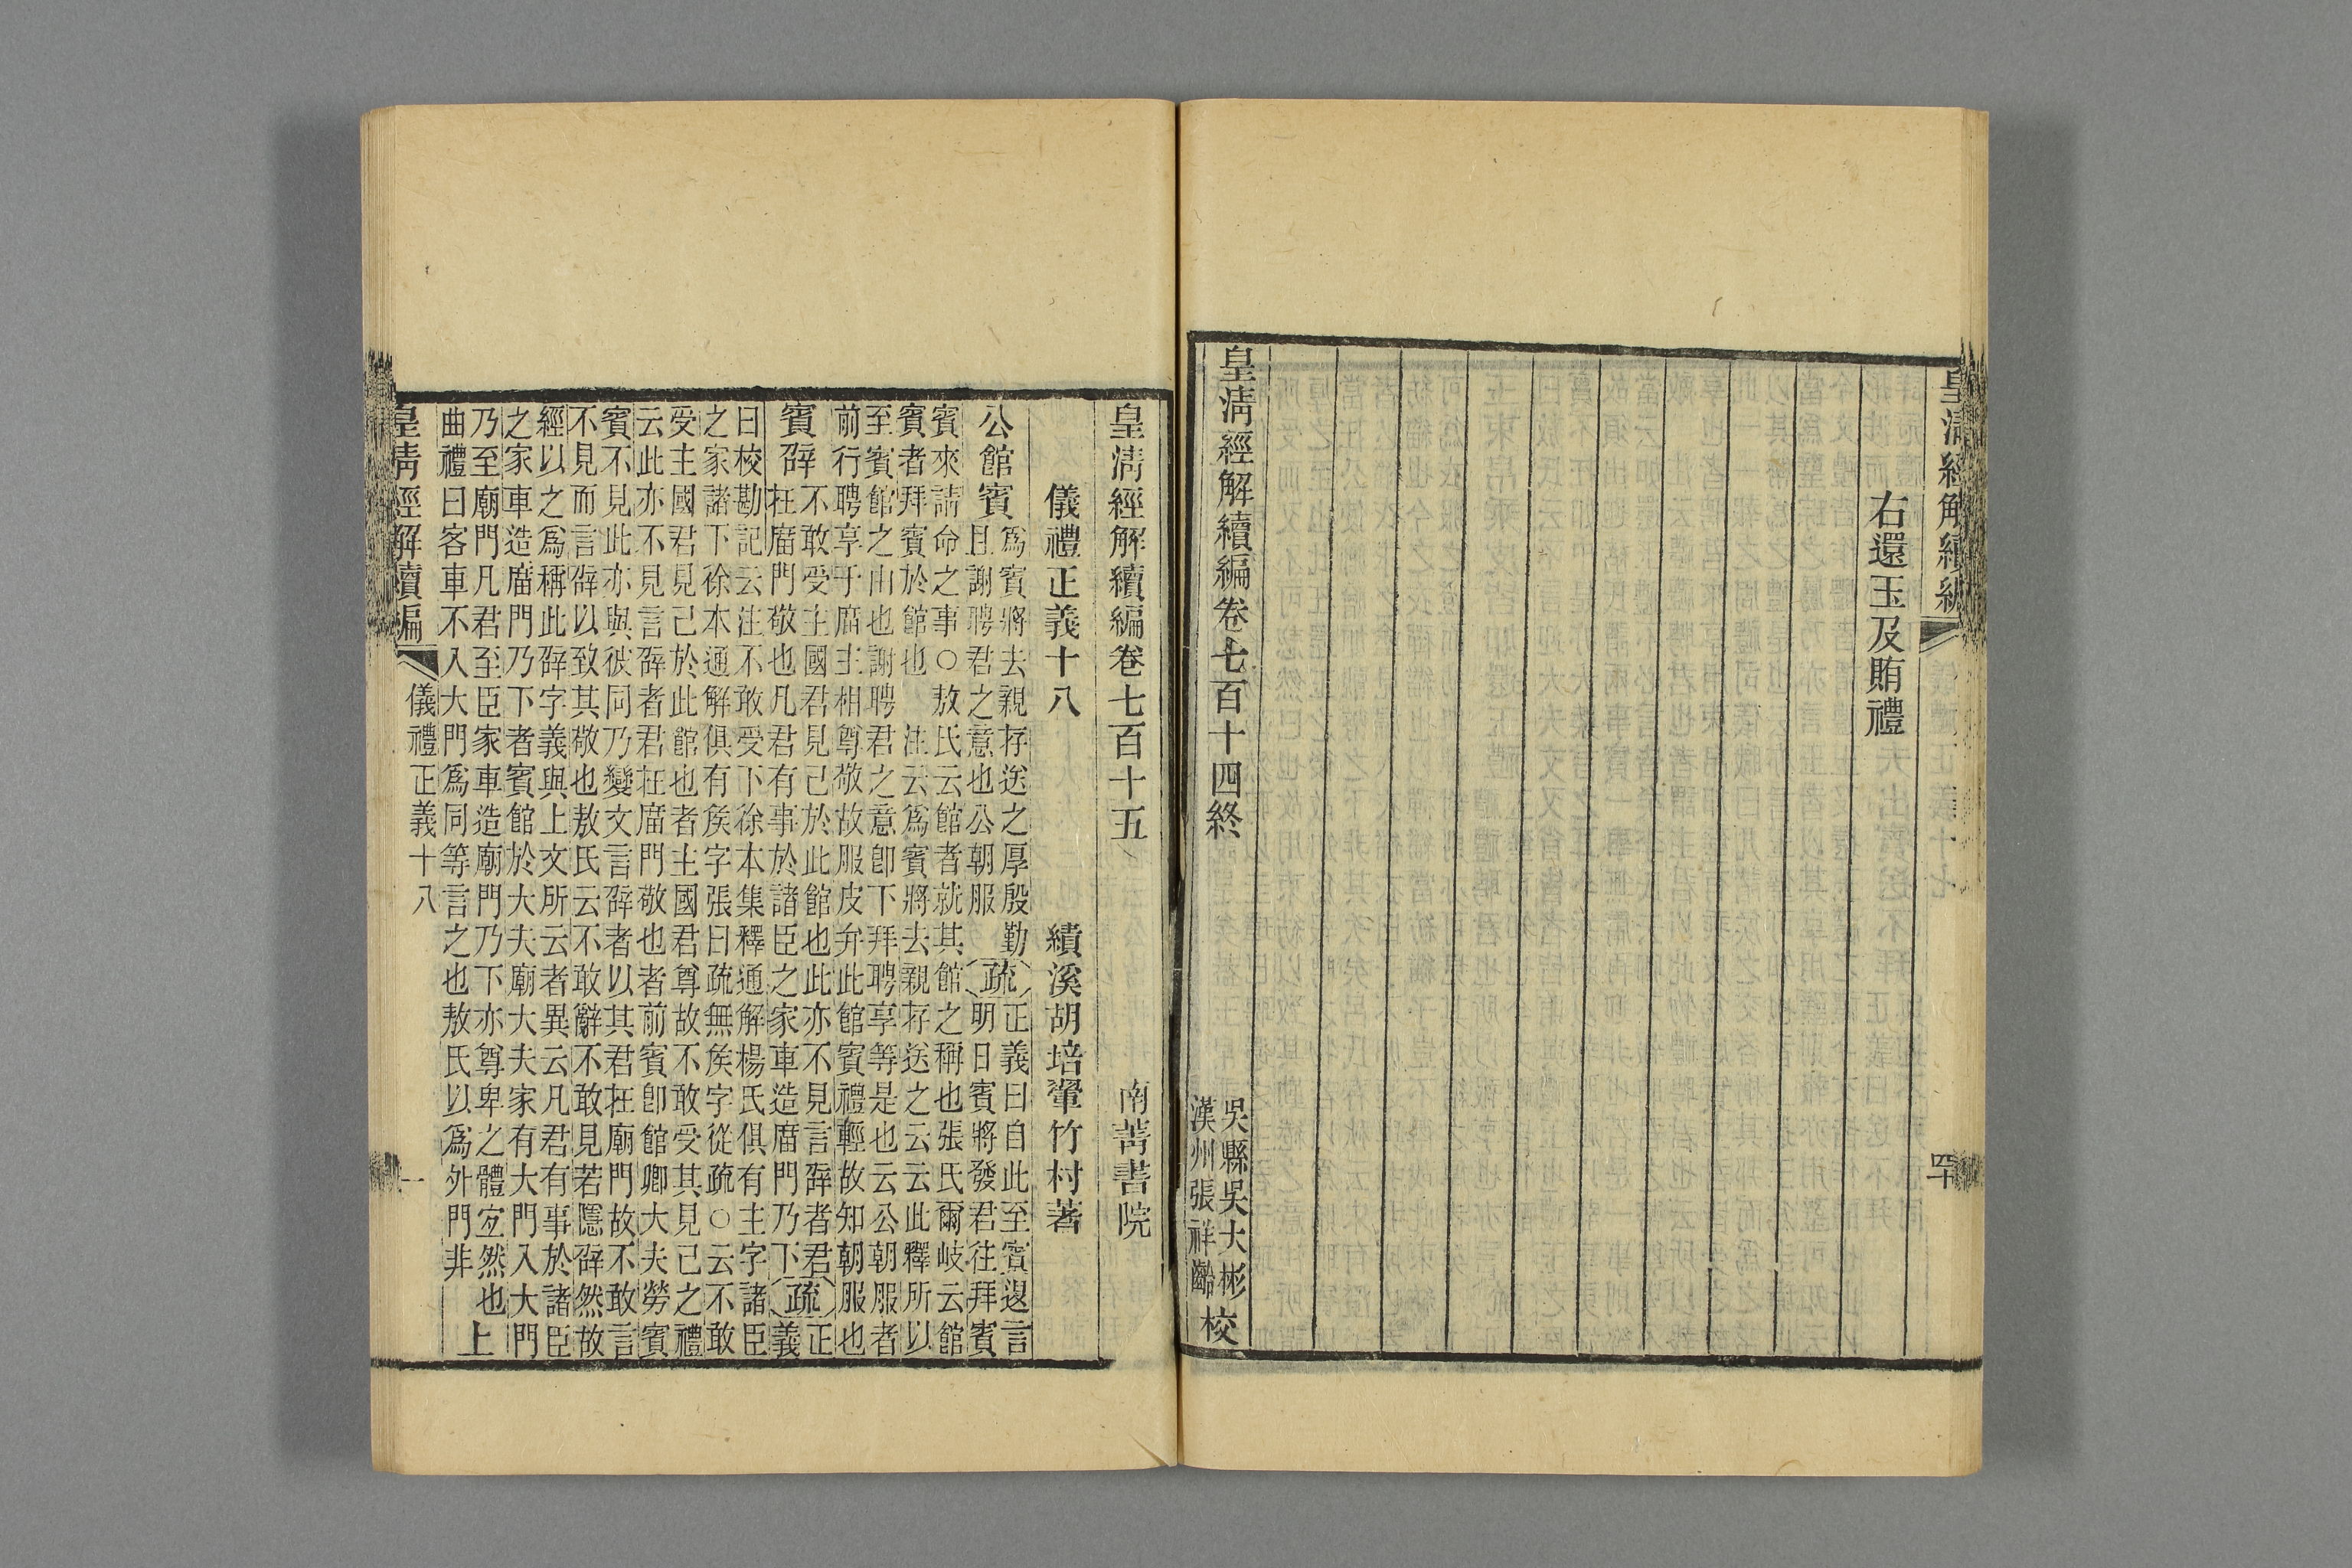 皇清經解續編
儀禮正義十七
四十
右還玉及賄禮
皇清經解續編卷七百十四終
吳縣吳大彬
漢州張祥齡
校
皇清經解續編卷七百十五 南菁書院
儀禮正義十八 績溪胡培翬竹村著
公館賓
爲賓將去親存送之厚殷勤
且謝聘君之意也公朝服
疏
正義曰自此至賓退言
明日賓將發君往拜賓
賓來請命之事○敖氏云館者就其館之稱也張氏爾岐云館
賓者拜賓於館也 注云爲賓將去親存送之云云此釋所以
至賓館之由也謝聘君之意卽下拜聘享等是也云公朝服者
前行聘享于庿主相尊敬故服皮弁此館賓禮輕故知朝服也
賓辟
不敢受主國君見己於此館也此亦不見言辟者君
在庿門敬也凡君有事於諸臣之家車造庿門乃下
疏
正
義
曰校勘記云注不敢受下徐本集釋通解楊氏俱有主字諸臣
之家諸下徐本通解俱有矦字張曰疏無矦字從疏○云不敢
受主國君見己於此館也者主國君尊故不敢受其見己之禮
云此亦不見言辟者君在庿門敬也者前賓卽館卿大夫勞賓
賓不見此亦與彼同乃變文言辟者以其君在廟門故不敢言
不見而言辟以致其敬也敖氏云不敢辭不敢見若隱辟然故
經以之爲稱此辟字義與上文所云者異云凡君有事於諸臣
之家車造庿門乃下者賓館於大夫廟大夫家有大門入大門
乃至廟門凡君至臣家車造廟門乃下亦尊卑之體宐然也上
曲禮曰客車不入大門爲同等言之也敖氏以爲外門非
皇清經解續編
儀禮正義十八
一